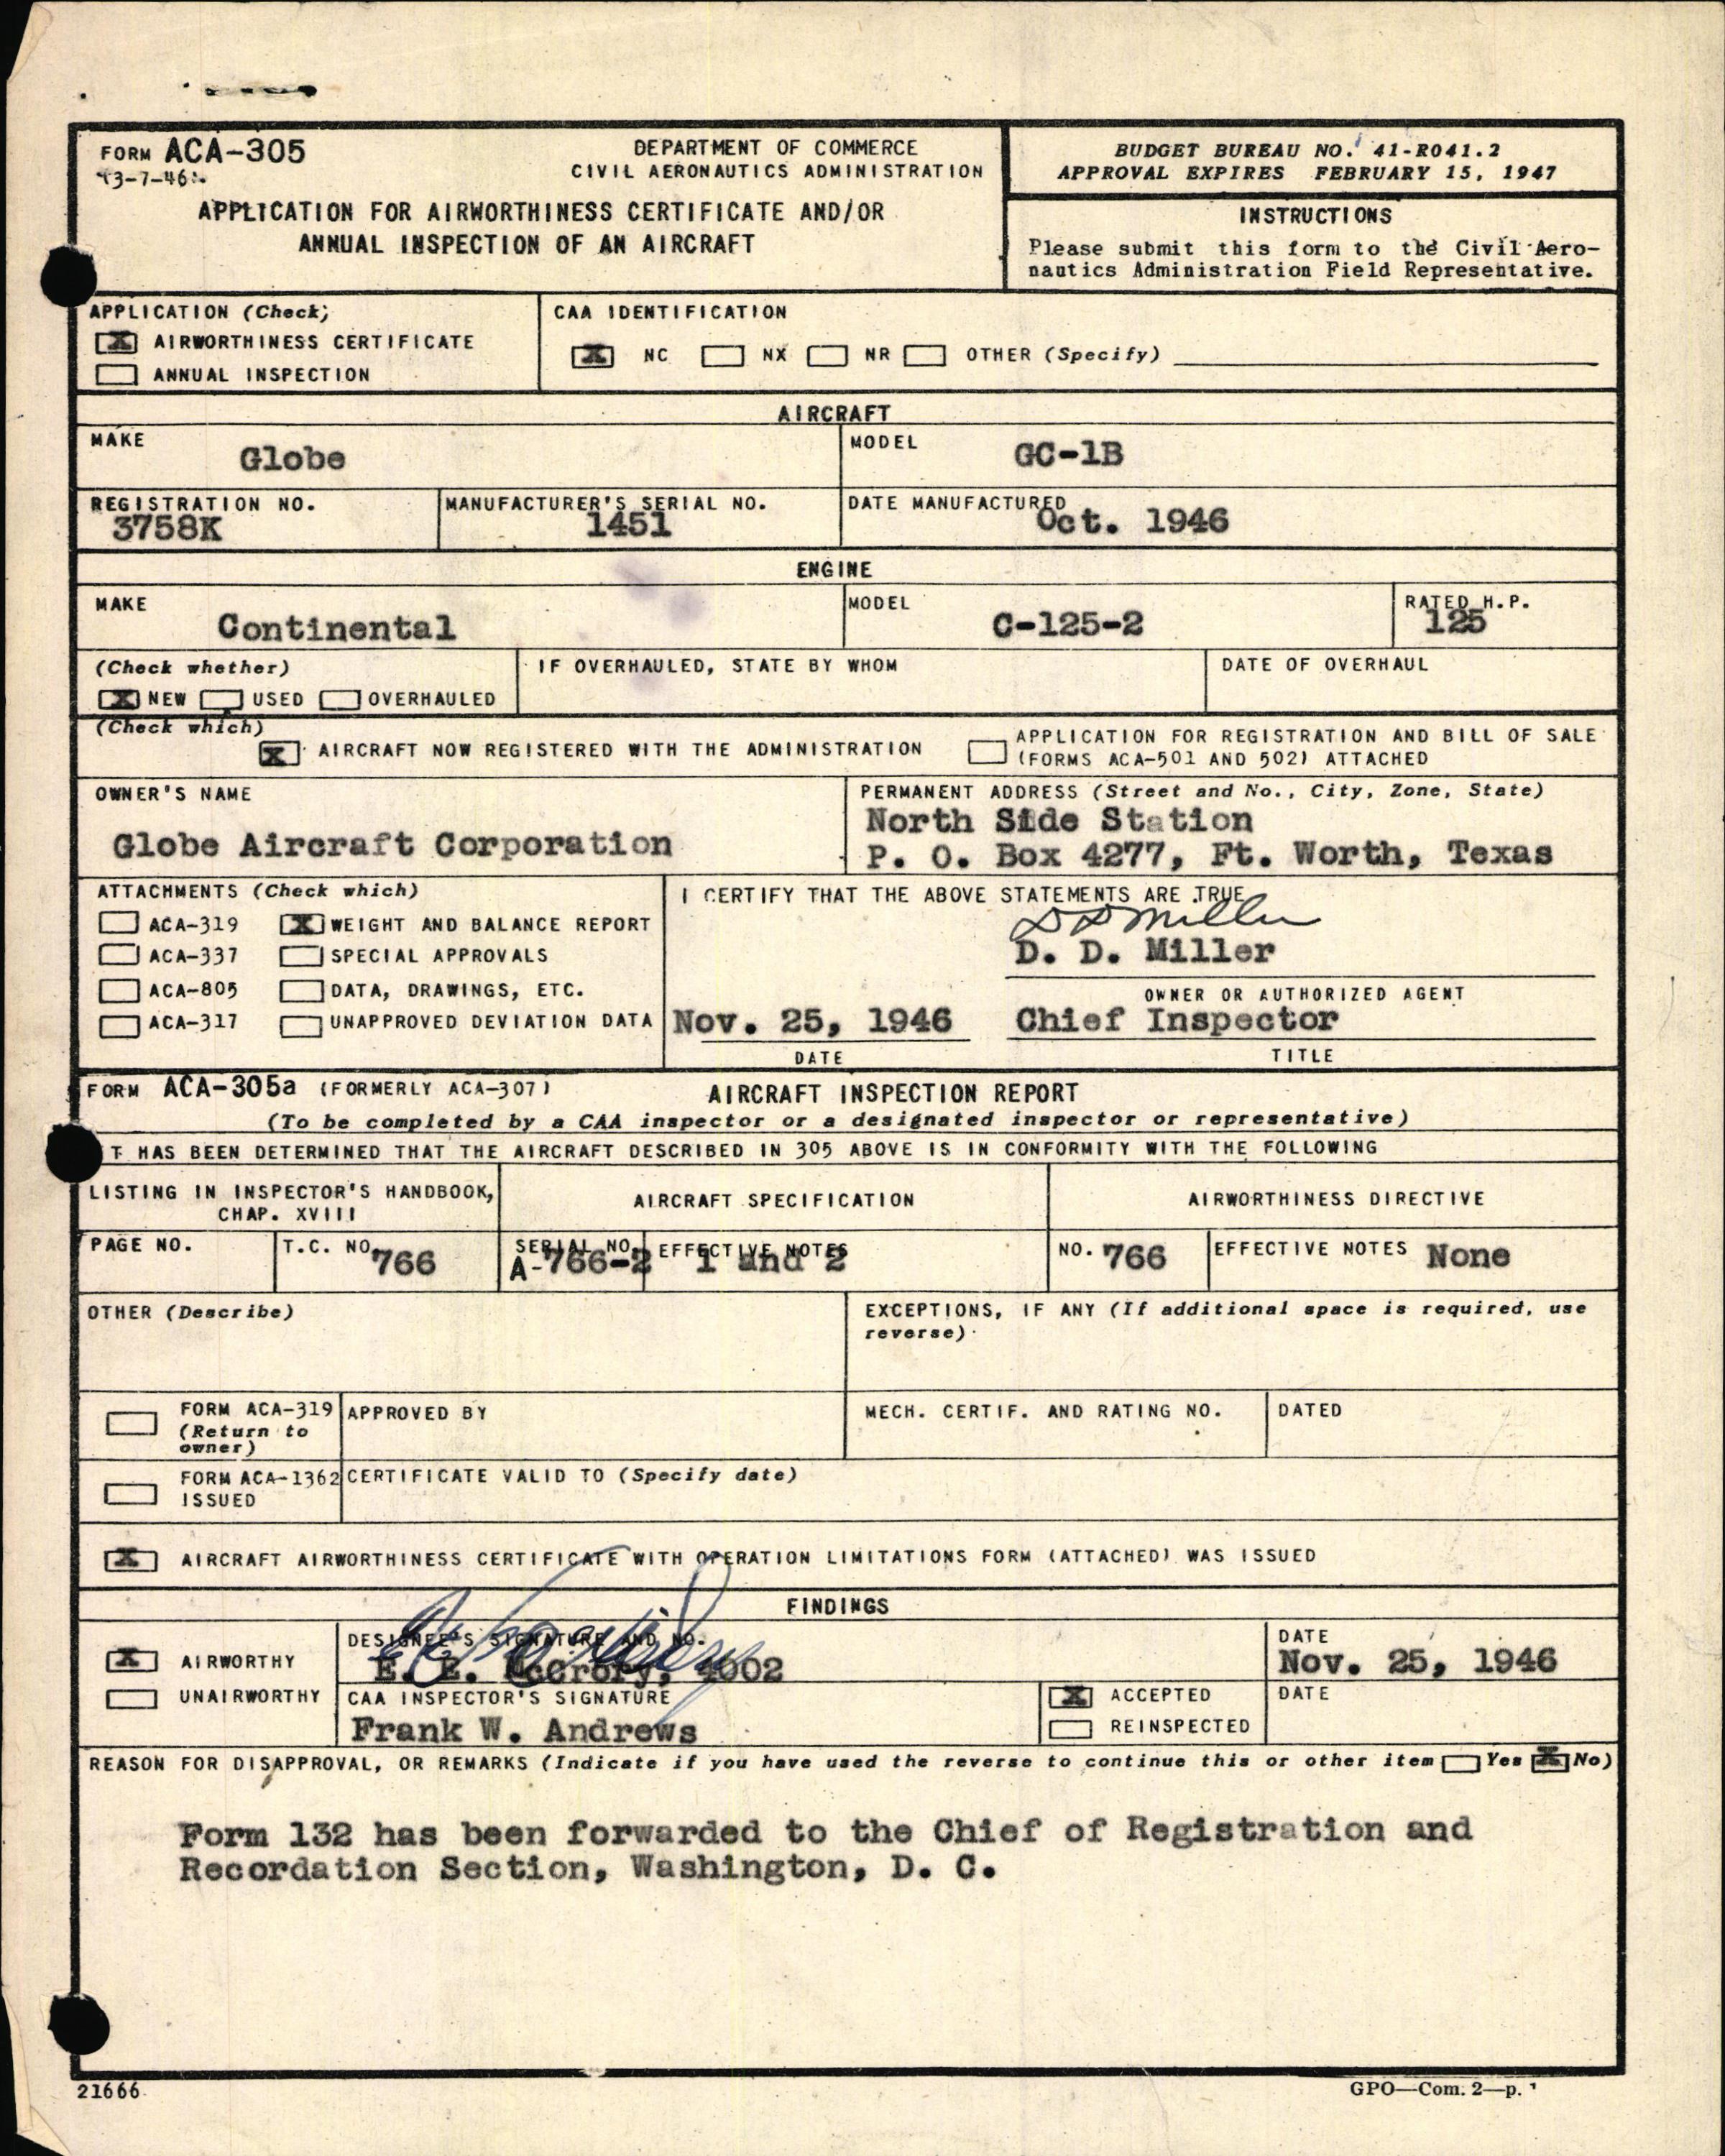 FORM ACA-305
(3-7-46)
DEPARTMENT OF COMMERCE
CIVIL AERONAUTICS ADMINISTRATION
APPLICATION FOR AIRWORTHINESS CERTIFICATE AND/OR
ANNUAL INSPECTION OF AN AIRCRAFT
BUDGET BUREAU NO. 41-R041.2
APPROVAL EXPIRES FEBRUARY 15, 1947
INSTRUCTIONS
Please submit this form to the Civil Aero-
nautics Administration Field Representative.
APPLICATION (Check)
X AIRWORTHINESS CERTIFICATE
ANNUAL INSPECTION
CAA IDENTIFICATION
X NC NX NR OTHER (Specify)
AIRCRAFT
MAKE
Globe
MODEL
GC-1B
REGISTRATION NO.
3758K
MANUFACTURER'S SERIAL NO.
1451
DATE MANUFACTURED
Oct. 1946
ENGINE
MAKE
Continental
MODEL
C-125-2
RATED H.P.
125
(Check whether)
X NEW USED OVERHAULED
IF OVERHAULED, STATE BY WHOM
DATE OF OVERHAUL
(Check which)
X AIRCRAFT NOW REGISTERED WITH THE ADMINISTRATION
APPLICATION FOR REGISTRATION AND BILL OF SALE
(FORMS ACA-501 AND 502) ATTACHED
OWNER'S NAME
Globe Aircraft Corporation
PERMANENT ADDRESS (Street and No., City, Zone, State)
North Side Station
P. O. Box 4277, Ft. Worth, Texas
ATTACHMENTS (Check which)
ACA-319 X WEIGHT AND BALANCE REPORT
ACA-337 SPECIAL APPROVALS
ACA-805 DATA, DRAWINGS, ETC.
ACA-317 UNAPPROVED DEVIATION DATA
I CERTIFY THAT THE ABOVE STATEMENTS ARE TRUE
D D Miller
D. D. Miller
OWNER OR AUTHORIZED AGENT
Nov. 25, 1946 Chief Inspector
DATE TITLE
FORM ACA-305a (FORMERLY ACA-307) AIRCRAFT INSPECTION REPORT
(To be completed by a CAA inspector or a designated inspector or representative)
T HAS BEEN DETERMINED THAT THE AIRCRAFT DESCRIBED IN 305 ABOVE IS IN CONFORMITY WITH THE FOLLOWING
LISTING IN INSPECTOR'S HANDBOOK,
CHAP. XVIII
AIRCRAFT SPECIFICATION
AIRWORTHINESS DIRECTIVE
PAGE NO.
T.C. NO.
766
SERIAL NO.
A-766-2
EFFECTIVE NOTES
1 and 2
NO. 766
EFFECTIVE NOTES None
OTHER (Describe)
EXCEPTIONS, IF ANY (If additional space is required, use
reverse)
FORM ACA-319
(Return to
owner)
APPROVED BY
MECH. CERTIF. AND RATING NO.
DATED
FORM ACA-1362
ISSUED
CERTIFICATE VALID TO (Specify date)
X AIRCRAFT AIRWORTHINESS CERTIFICATE WITH OPERATION LIMITATIONS FORM (ATTACHED) WAS ISSUED
FINDINGS
X AIRWORTHY
UNAIRWORTHY
DESIGNEE'S SIGNATURE AND NO.
E. E. McCrory, 4002
DATE
Nov. 25, 1946
CAA INSPECTOR'S SIGNATURE
Frank W. Andrews
X ACCEPTED
REINSPECTED
DATE
REASON FOR DISAPPROVAL, OR REMARKS (Indicate if you have used the reverse to continue this or other item Yes X No)
Form 132 has been forwarded to the Chief of Registration and
Recordation Section, Washington, D. C.
21666
GPO—Com. 2—p.